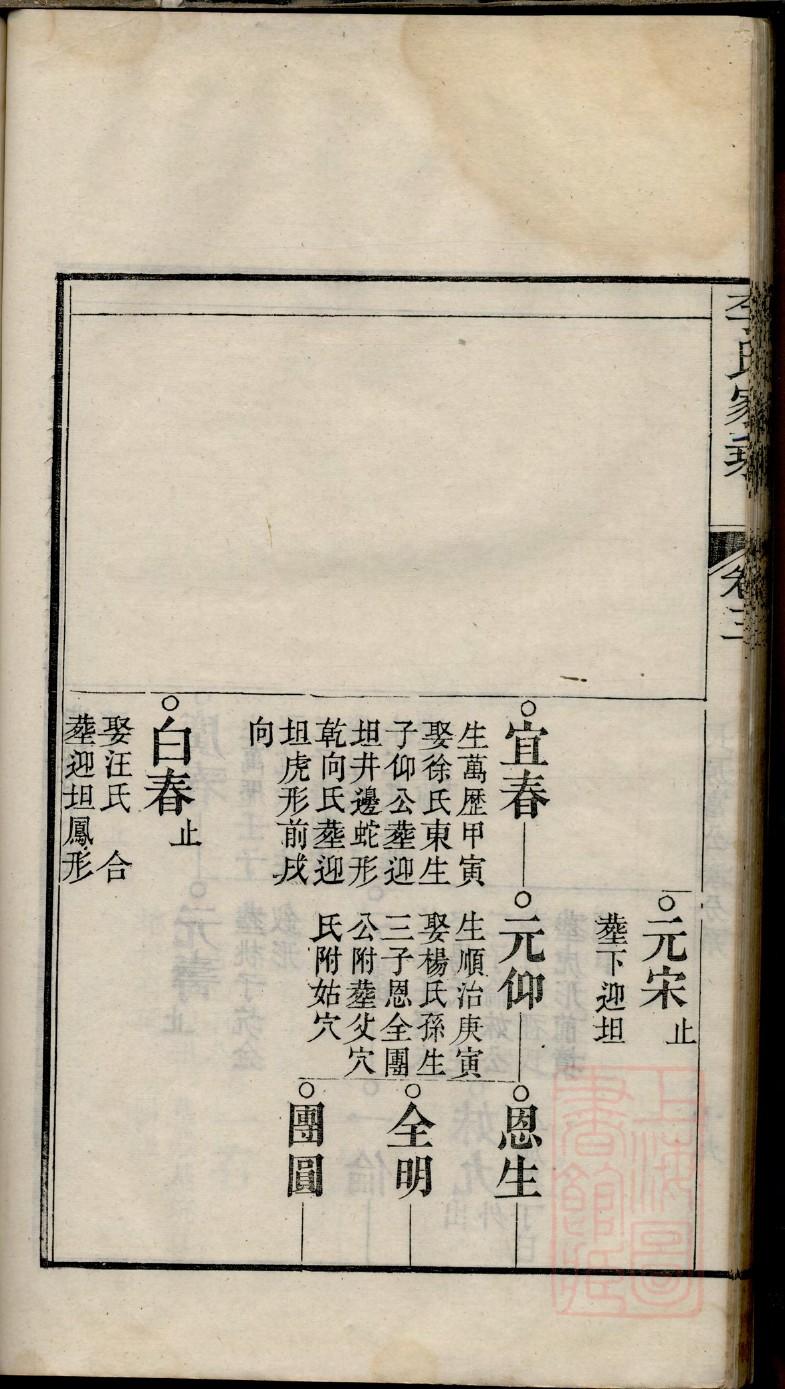 李氏家乘
卷三
元宋
止
葬下迎坦
宜春
生萬歷甲寅
娶徐氏東生
子仰公葬迎
坦井邊蛇形
乾向氏葬迎
坦虎形前戌
向
元仰
生順治庚寅
娶楊氏孫生
三子恩全團
公附葬父穴
氏附姑穴
恩生
全明
團圓
白春
止
娶汪氏 合
葬迎坦鳳形
上海圖
書館藏